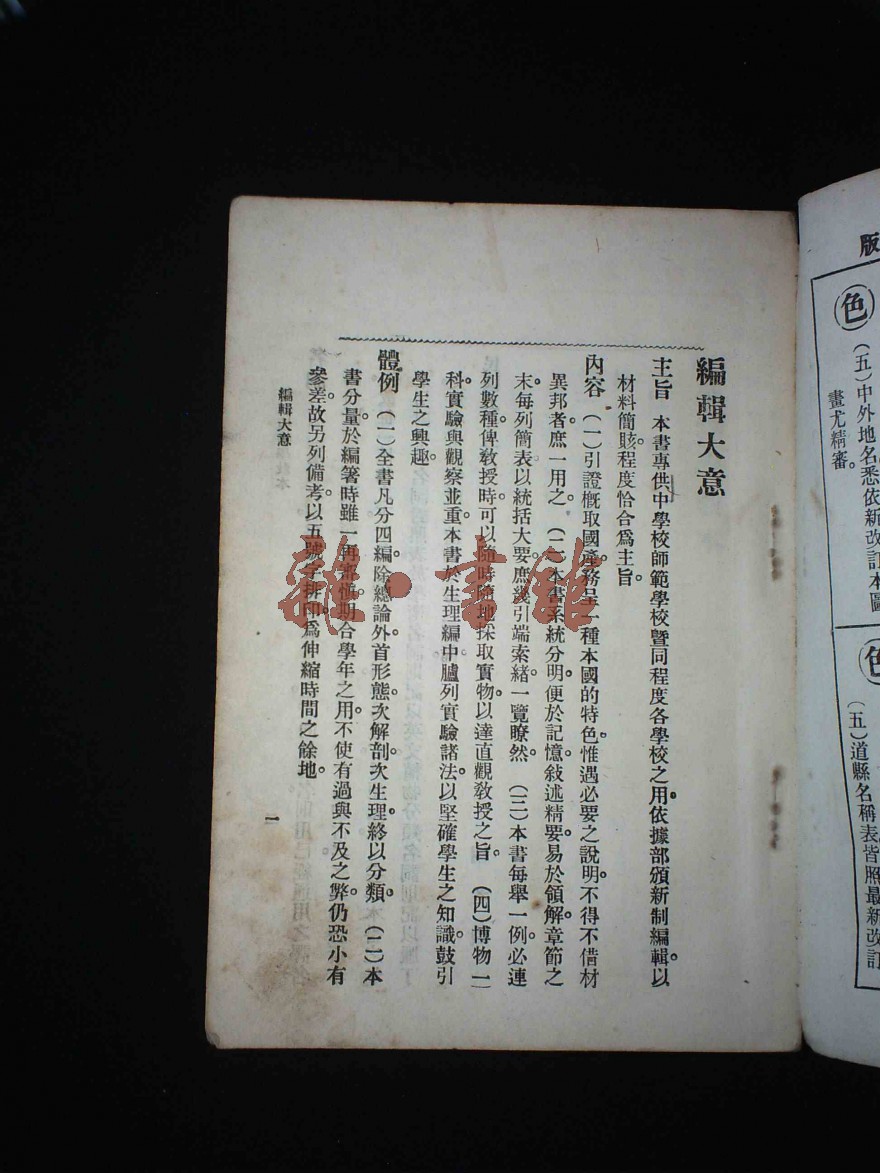 版
色
（五）中外地名悉依新改訂本圖
畫尤精審。
（五）道縣名稱表皆照最新改訂
編輯大意
主旨　本書專供中學校師範學校暨同程度各學校之用。依據部頒新制編輯。以
材料簡賅。程度恰合爲主旨。
內容　（一）引證概取國產。務呈一種本國的特色。惟遇必要之說明。不得不借材
異邦者。庶一用之。（二）本書系統分明。便於記憶。敍述精要。易於領解。章節之
末。每列簡表以統括大要。庶幾引端索緒。一覽瞭然。（三）本書每舉一例。必連
列數種。俾敎授時可以隨時隨地採取實物。以達直觀敎授之旨。（四）博物一
科。實驗與觀察並重。本書於生理編中臚列實驗諸法。以堅確學生之知識。鼓引
學生之興趣。
體例　（一）全書凡分四編。除總論外。首形態。次解剖。次生理。終以分類。（二）本
書分量。於編箸時雖一再審愼。期合學年之用。不使有過與不及之弊。仍恐小有
參差。故另列備考。以五號字排印。爲伸縮時間之餘地。
編輯大意
一
雜·書館